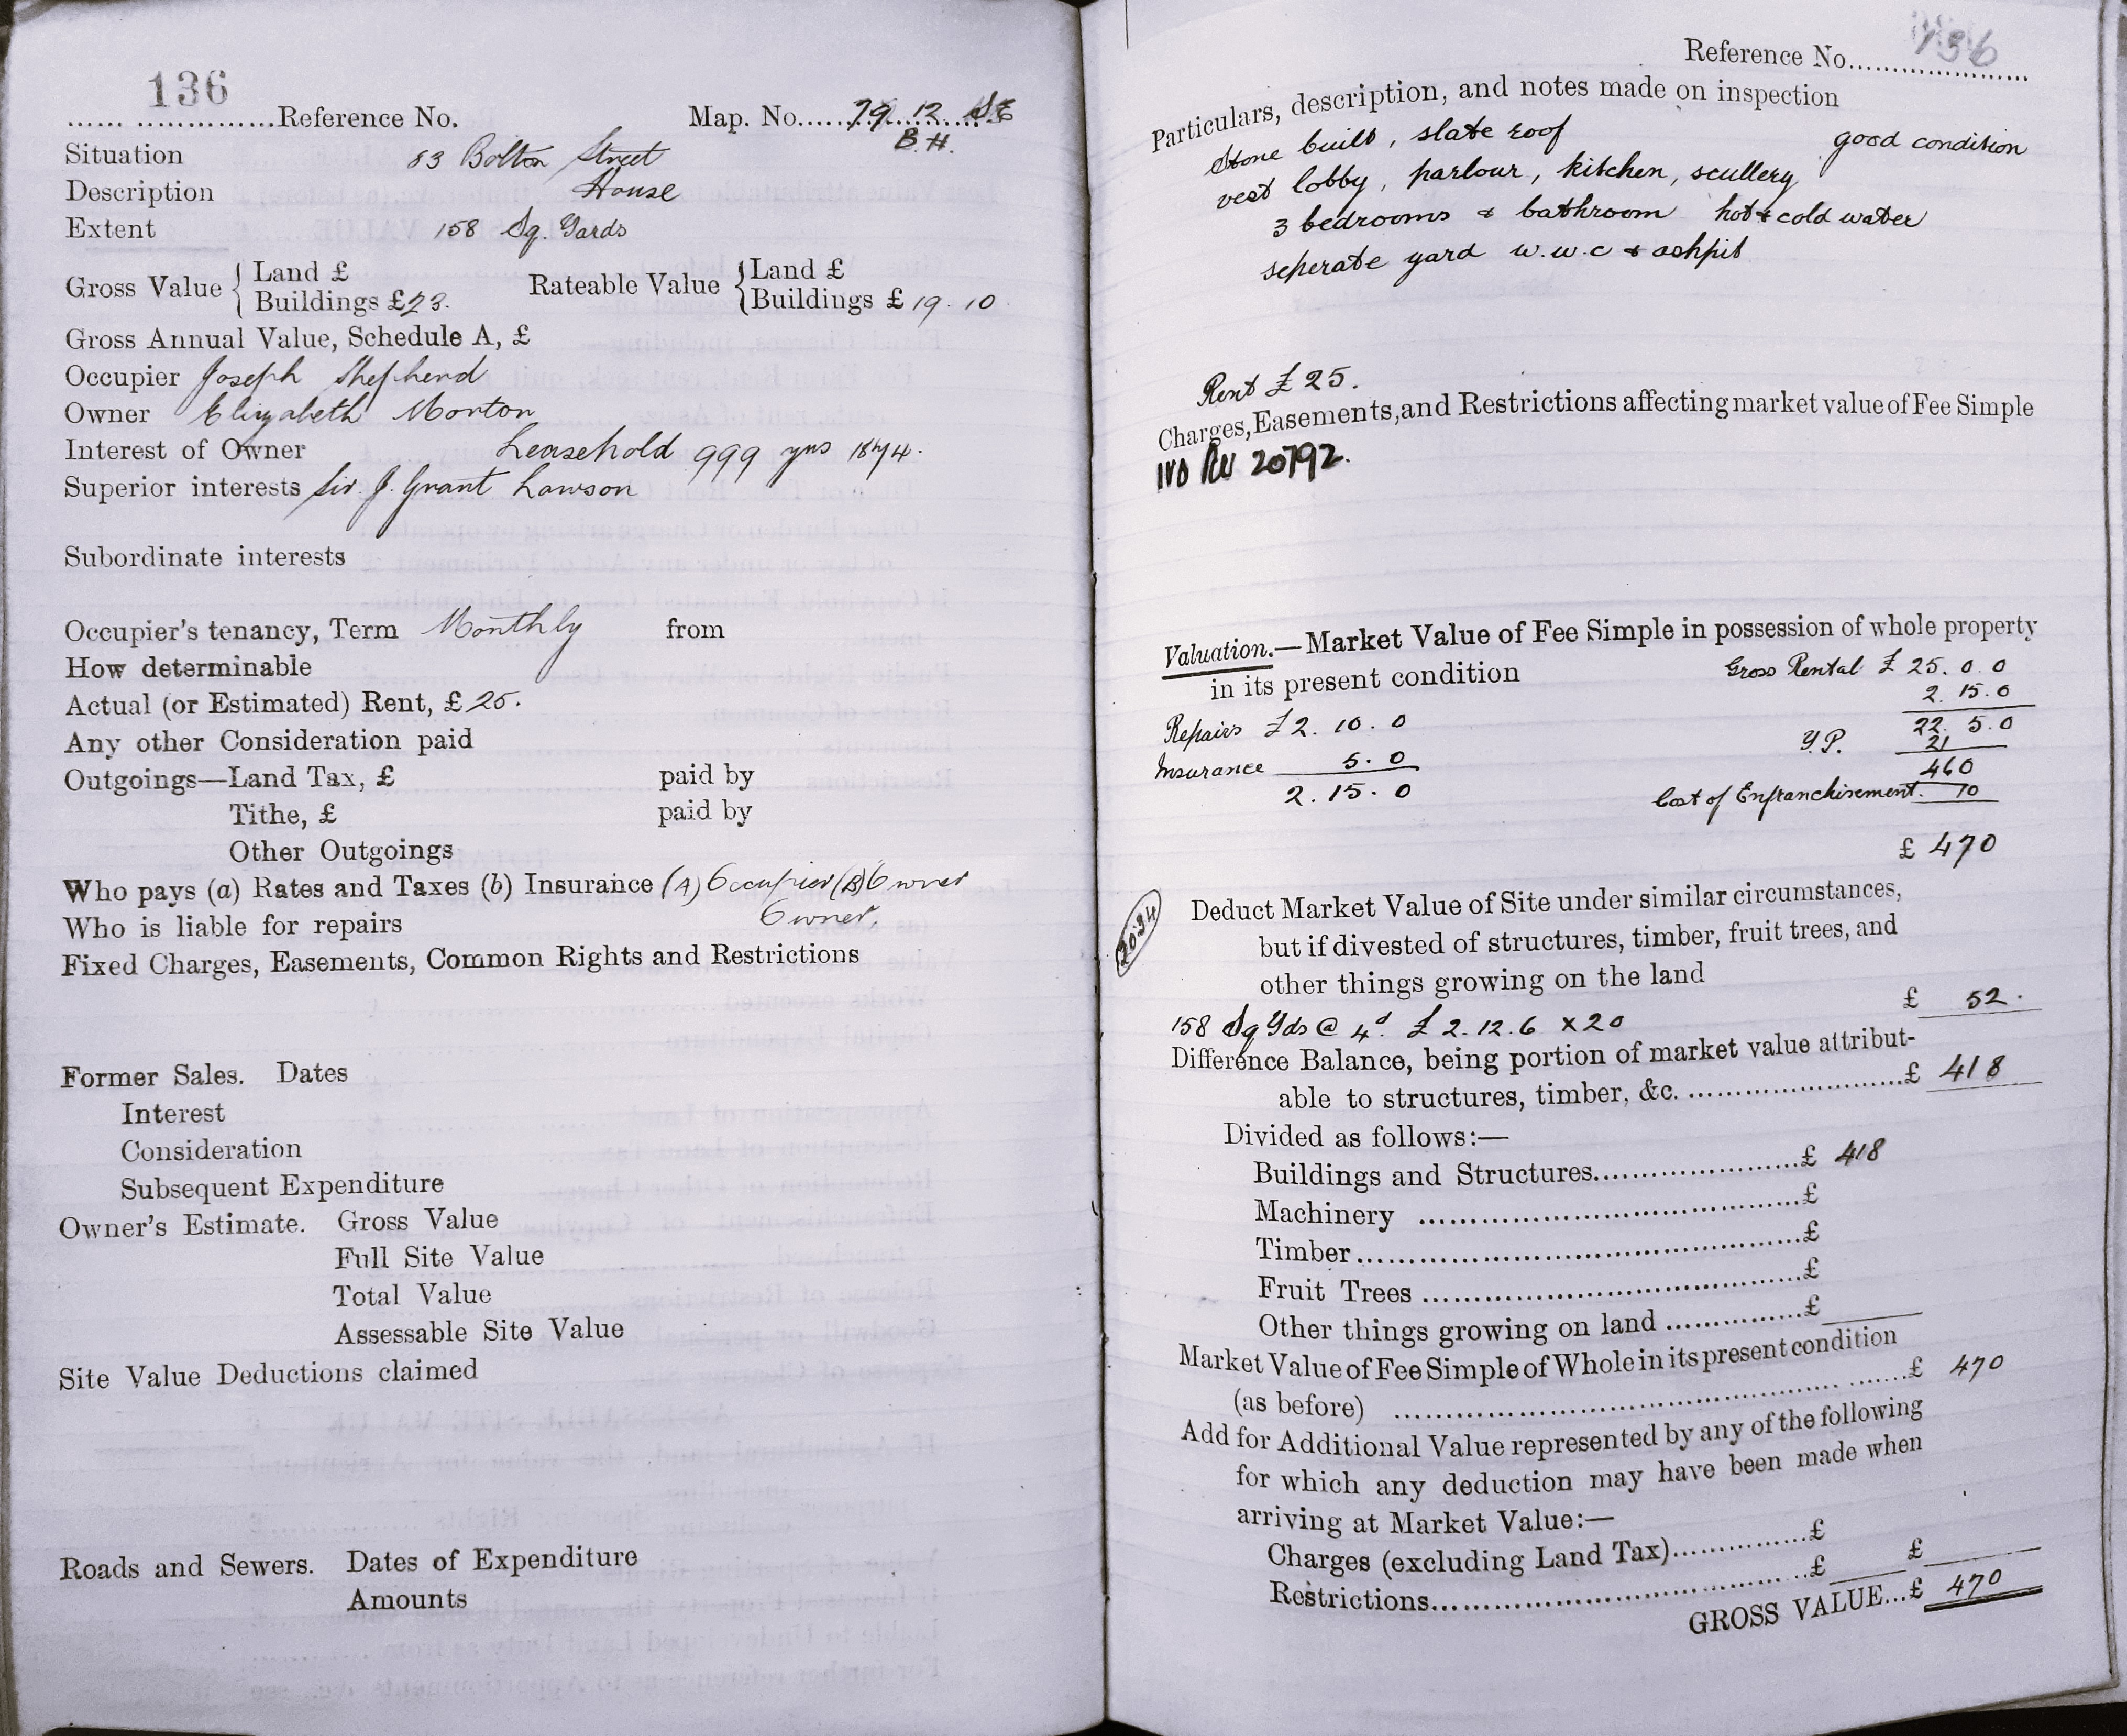 136
...... ...............Reference No. Map. No..... 79. 12. SE
B.H.
Situation 83 Bolton Street
Description House
Extent 158 Sq. Yards
Gross Value { Land £ Rateable Value { Land £
Buildings £23. Buildings £ 19. 10
Gross Annual Value, Schedule A, £
Occupier Joseph Shepherd
Owner Elizabeth Morton
Interest of Owner Leasehold 999 yrs 1874.
Superior interests Sir. J. Grant Lawson
Subordinate interests
Occupier's tenancy, Term Monthly from
How determinable
Actual (or Estimated) Rent, £ 25.
Any other Consideration paid
Outgoings—Land Tax, £ paid by
Tithe, £ paid by
Other Outgoings
Who pays (a) Rates and Taxes (b) Insurance (A) Occupier (B) Owner
Who is liable for repairs Owner.
Fixed Charges, Easements, Common Rights and Restrictions
Former Sales. Dates
Interest
Consideration
Subsequent Expenditure
Owner's Estimate. Gross Value
Full Site Value
Total Value
Assessable Site Value
Site Value Deductions claimed
Roads and Sewers. Dates of Expenditure
Amounts
Reference No. 136
Particulars, description, and notes made on inspection
Stone built, slate roof good condition
vest lobby, parlour, kitchen, scullery
3 bedrooms & bathroom hot & cold water
seperate yard w.w.c & ashpit
Rent £25.
Charges, Easements, and Restrictions affecting market value of Fee Simple
20792.
Valuation.—Market Value of Fee Simple in possession of whole property
in its present condition Gross Rental £ 25. 0. 0
2. 15. 0
Repairs £2. 10. 0 22. 5. 0
Y.P. 21
Insurance 5. 0 460
2. 15. 0 Cost of Enfranchisement. 10
£ 470
2034
Deduct Market Value of Site under similar circumstances,
but if divested of structures, timber, fruit trees, and
other things growing on the land
£ 52.
158 Sq Yds @ 4d. £ 2. 12. 6 x 20
Difference Balance, being portion of market value attribut-
able to structures, timber, &c. ........................£ 418
Divided as follows:—
Buildings and Structures.......................£ 418
Machinery .......................................£
Timber.............................................£
Fruit Trees ......................................£
Other things growing on land ...............£
Market Value of Fee Simple of Whole in its present condition
(as before) .......................................£ 470
Add for Additional Value represented by any of the following
for which any deduction may have been made when
arriving at Market Value:—
Charges (excluding Land Tax)...............£
Restrictions.......................................£ £
GROSS VALUE...£ 470